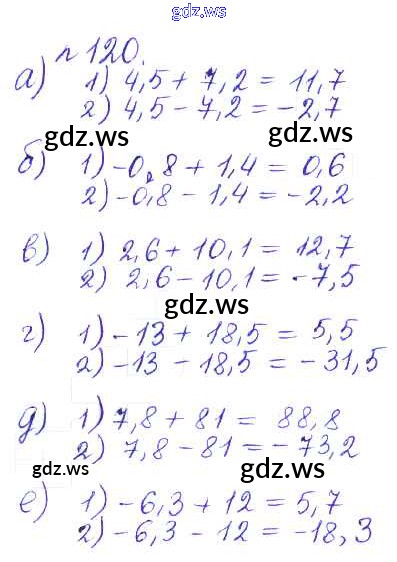 gdz.ws
n 120.
а) 1) 4,5 + 7,2 = 11,7
2) 4,5 - 7,2 = -2,7
gdz.ws gdz.ws
б) 1) -0,8 + 1,4 = 0,6
2) -0,8 - 1,4 = -2,2
в) 1) 2,6 + 10,1 = 12,7
2) 2,6 - 10,1 = -7,5
gdz.ws
г) 1) -13 + 18,5 = 5,5
2) -13 - 18,5 = -31,5
д) 1) 7,8 + 81 = 88,8
2) 7,8 - 81 = -73,2
gdz.ws gdz.ws
е) 1) -6,3 + 12 = 5,7
2) -6,3 - 12 = -18,3
gdz.ws